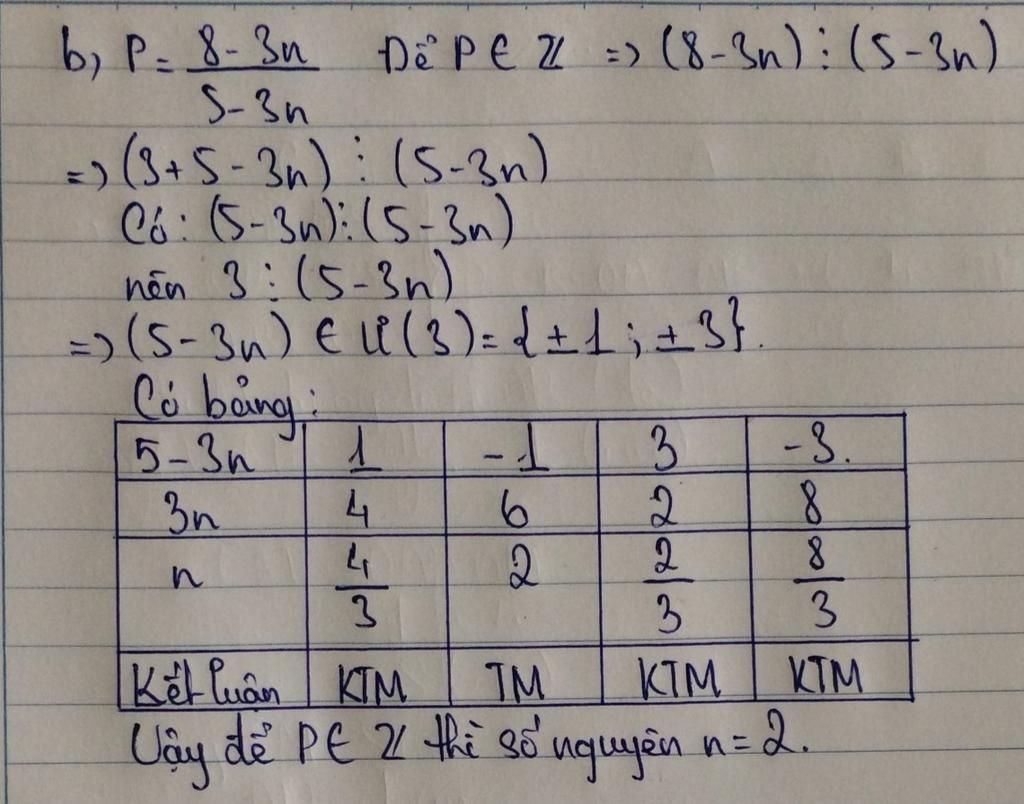 b, P = 8 - 3n / 5 - 3n Để P ∈ Z => (8-3n) ⋮ (5-3n)
=> (3+5-3n) ⋮ (5-3n)
Có: (5-3n) ⋮ (5-3n)
nên 3 ⋮ (5-3n)
=> (5-3n) ∈ Ư(3) = {±1; ±3}.
Có bảng:
5-3n 1 -1 3 -3.
3n 4 6 2 8
n 4/3 2 2/3 8/3
Kết luận KTM TM KTM KTM
Vậy để P ∈ Z thì số nguyên n = 2.